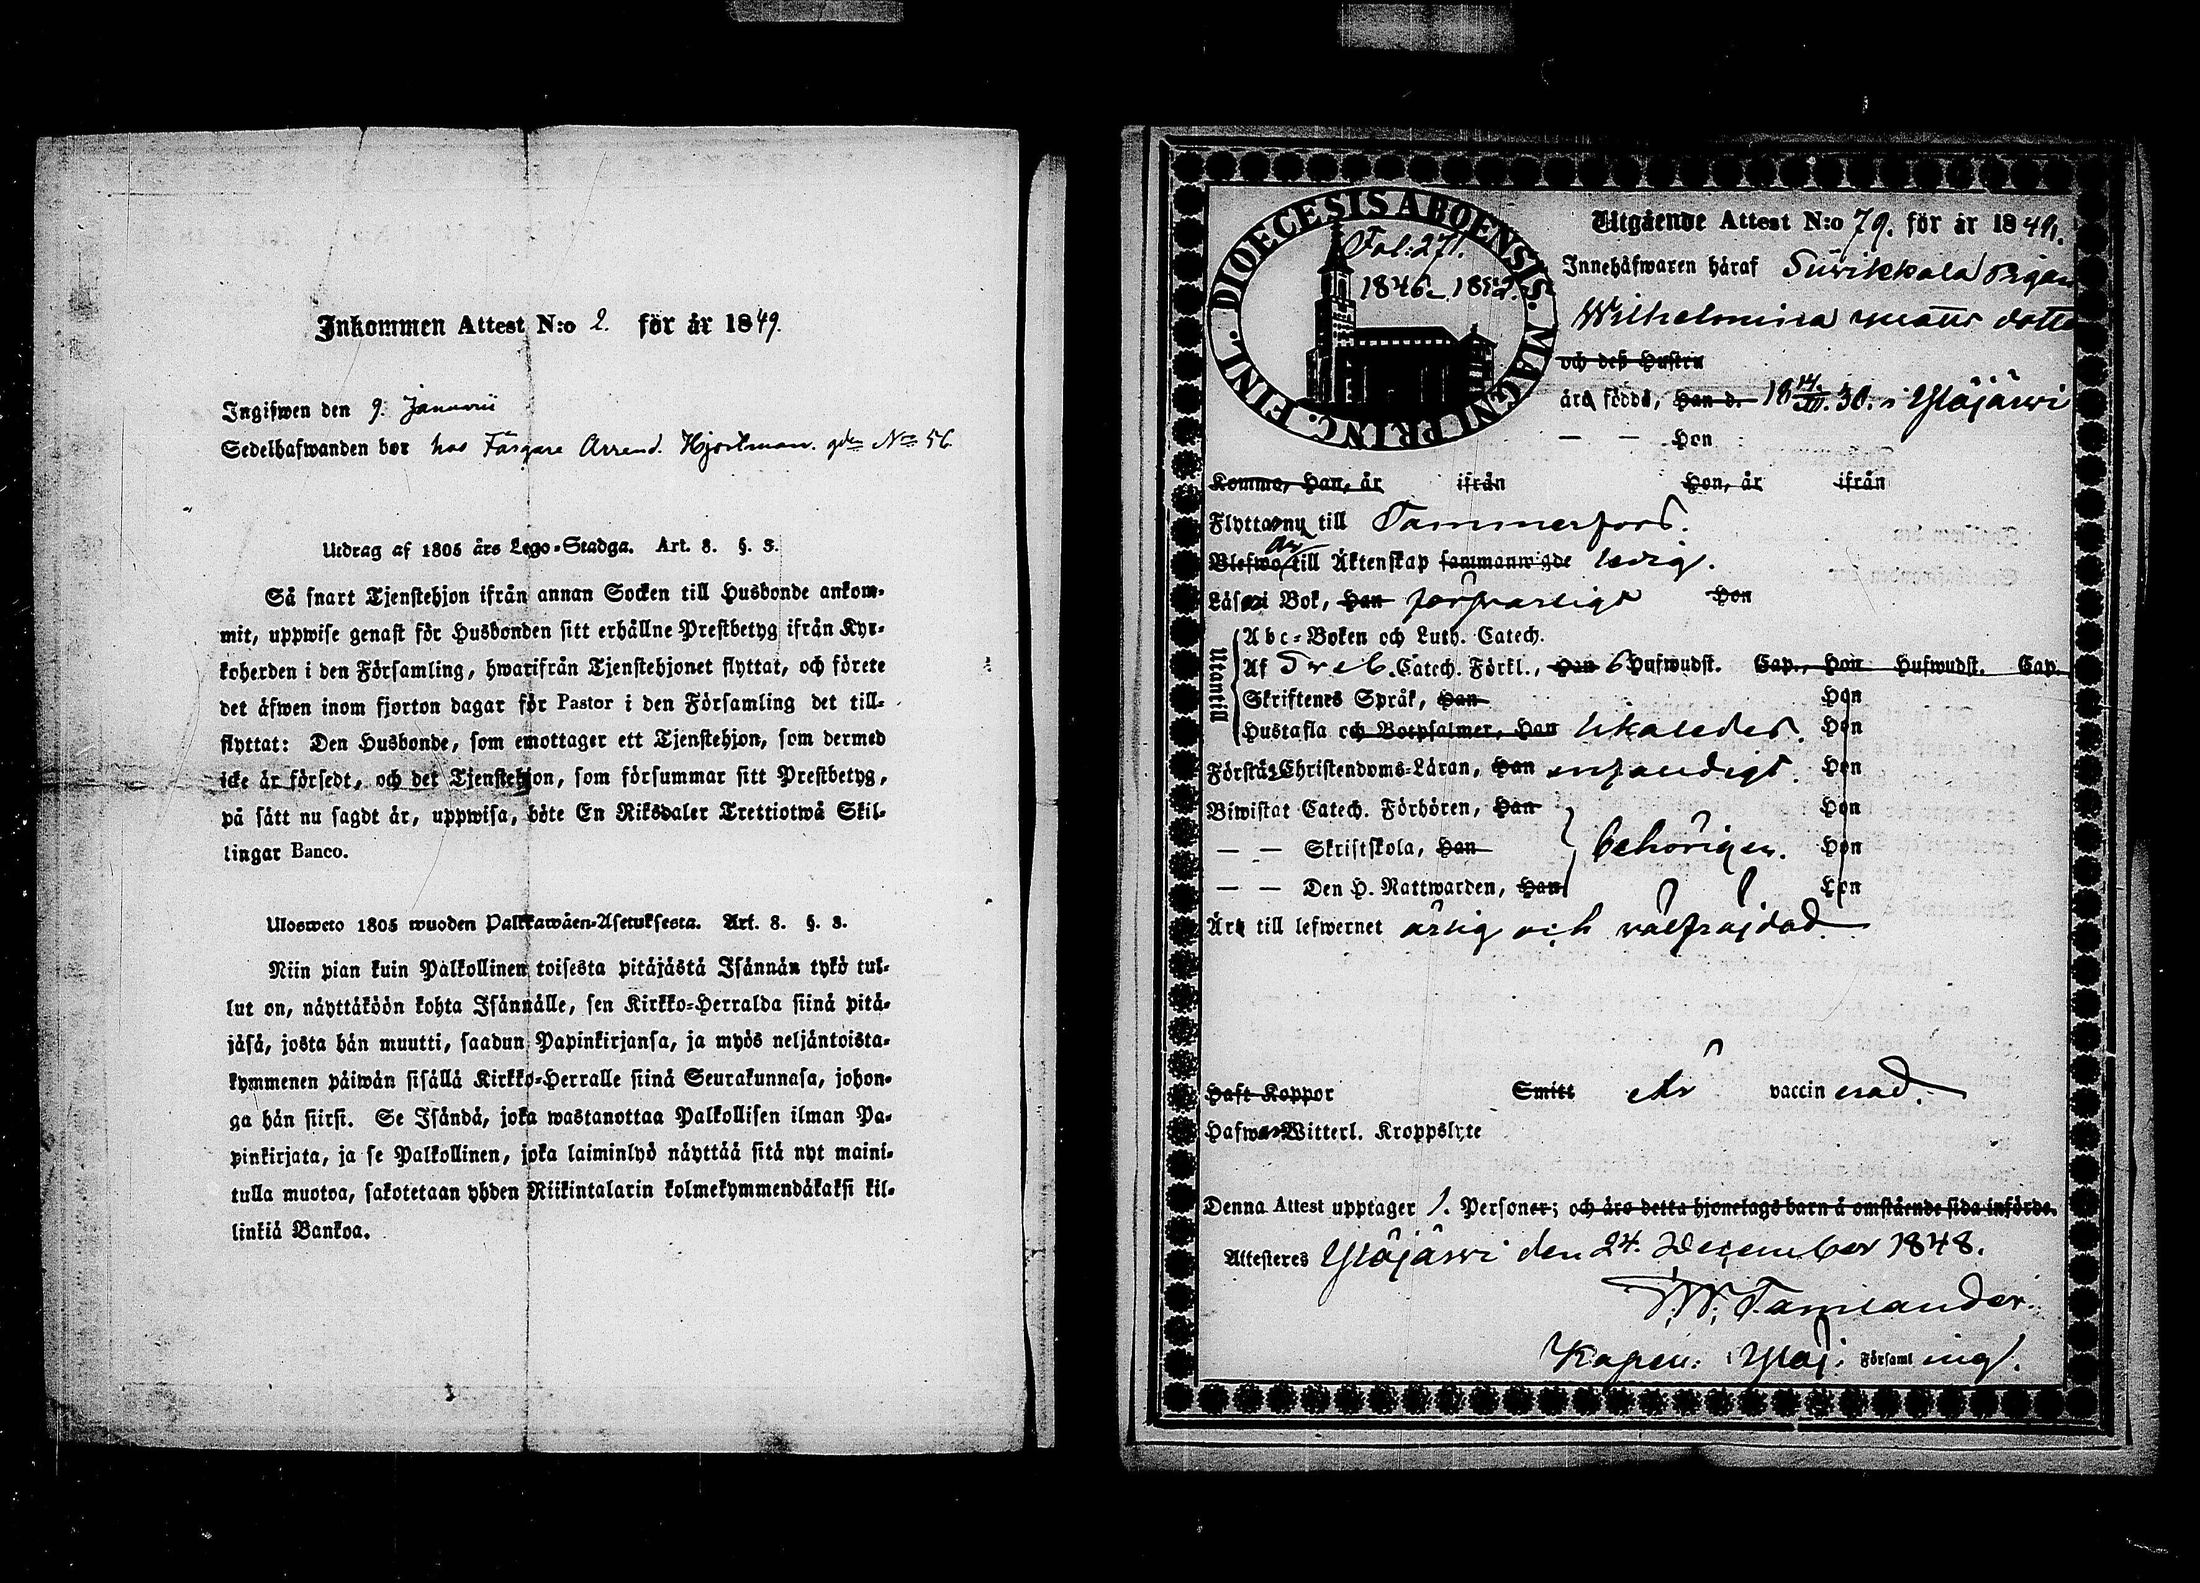 Inkommen Attest N:o 2. för år 1849.
Ingifwen den 9. Januarii
Sedelhafwanden bor hos Färgare Arrend. Hjortman. gden No 56
Utdrag af 1805 års Lego-Stadga. Art. 8. §. 3.
Så snart Tjenstehjon ifrån annan Socken till Husbonde ankom-
mit, uppwise genast för Husbonden sitt erhållne Prestbetyg ifrån Kyr-
koherden i den Församling, hwarifrån Tjenstehjonet flyttat, och förete
det äfwen inom fjorton dagar för Pastor i den Församling det till-
flyttat: Den Husbonde, som emottager ett Tjenstehjon, som dermed
icke är försedt, och det Tjenstehjon, som försummar sitt Prestbetyg,
på sätt nu sagdt är, uppwisa, böte En Riksdaler Trettiotwå Skil-
lingar Banco.
Ulosweto 1805 wuoden Palkkawäen-Asetuksesta. Art. 8. §. 3.
Niin pian kuin Palkollinen toisesta pitäjästä Isännän tykö tul-
lut on, näyttäköön kohta Isännälle, sen Kirkko-Herralda siinä pitä-
jäsä, josta hän muutti, saadun Papinkirjansa, ja myös neljäntoista-
kymmenen päiwän sisällä Kirkko-Herralle siinä Seurakunnasa, johon-
ga hän siirsi. Se Isändä, joka wastanottaa Palkollisen ilman Pa-
pinkirjata, ja se Palkollinen, joka laiminlyö näyttää sitä nyt maini-
tulla muotoa, sakotetaan yhden Riikintalarin kolmekymmendäkaksi kil-
linkiä Bankoa.
DIOECESIS ABOENSIS. MAGNI PRINC. FINL.
Fol: 271.
1846-1852.
Utgående Attest N:o 79. för år 1848.
Innehafwaren häraf Siwikkala Pigan
Wilhelmina Matts dotter
och deß Hustru
äro födde, Han d. 18 14/III. 30. i Ylöjärwi
— — Hon
Komma, Han, år ifrån Hon, år ifrån
Flyttar nu till Tammerfors.
Blefwo till Äktenskap sammanwigde ledig.
Läser i Bok, Han försvarligt Hon
Utantill
Abc-Boken och Luth. Catech.
Af Sweb. Catech. Förkl., Han 6 Hufwudst. Cap., Hon Hufwudst. Cap.
Skriftenes Språk, Han Hon
Hustafla och Botpsalmer, Han likaledes. Hon
Förstår Christendoms-Läran, Han enfaldigt. Hon
Biwistat Catech. Förhören, Han Hon
— — Skriftskola, Han behörigen. Hon
— — Den H. Nattwarden, Han Hon
Är till lefwernet ärlig och välfräjdad
Haft Koppor Smitt Är vaccinerad.
Hafwa Witterl. Kroppslyte
Denna Attest upptager 1. Personer; och äro detta hjonelags barn å omstående sida införde.
Attesteres Ylöjärwi den 24. December 1848.
W. Tamlander.
Kapell: i Ylöj: Församling.